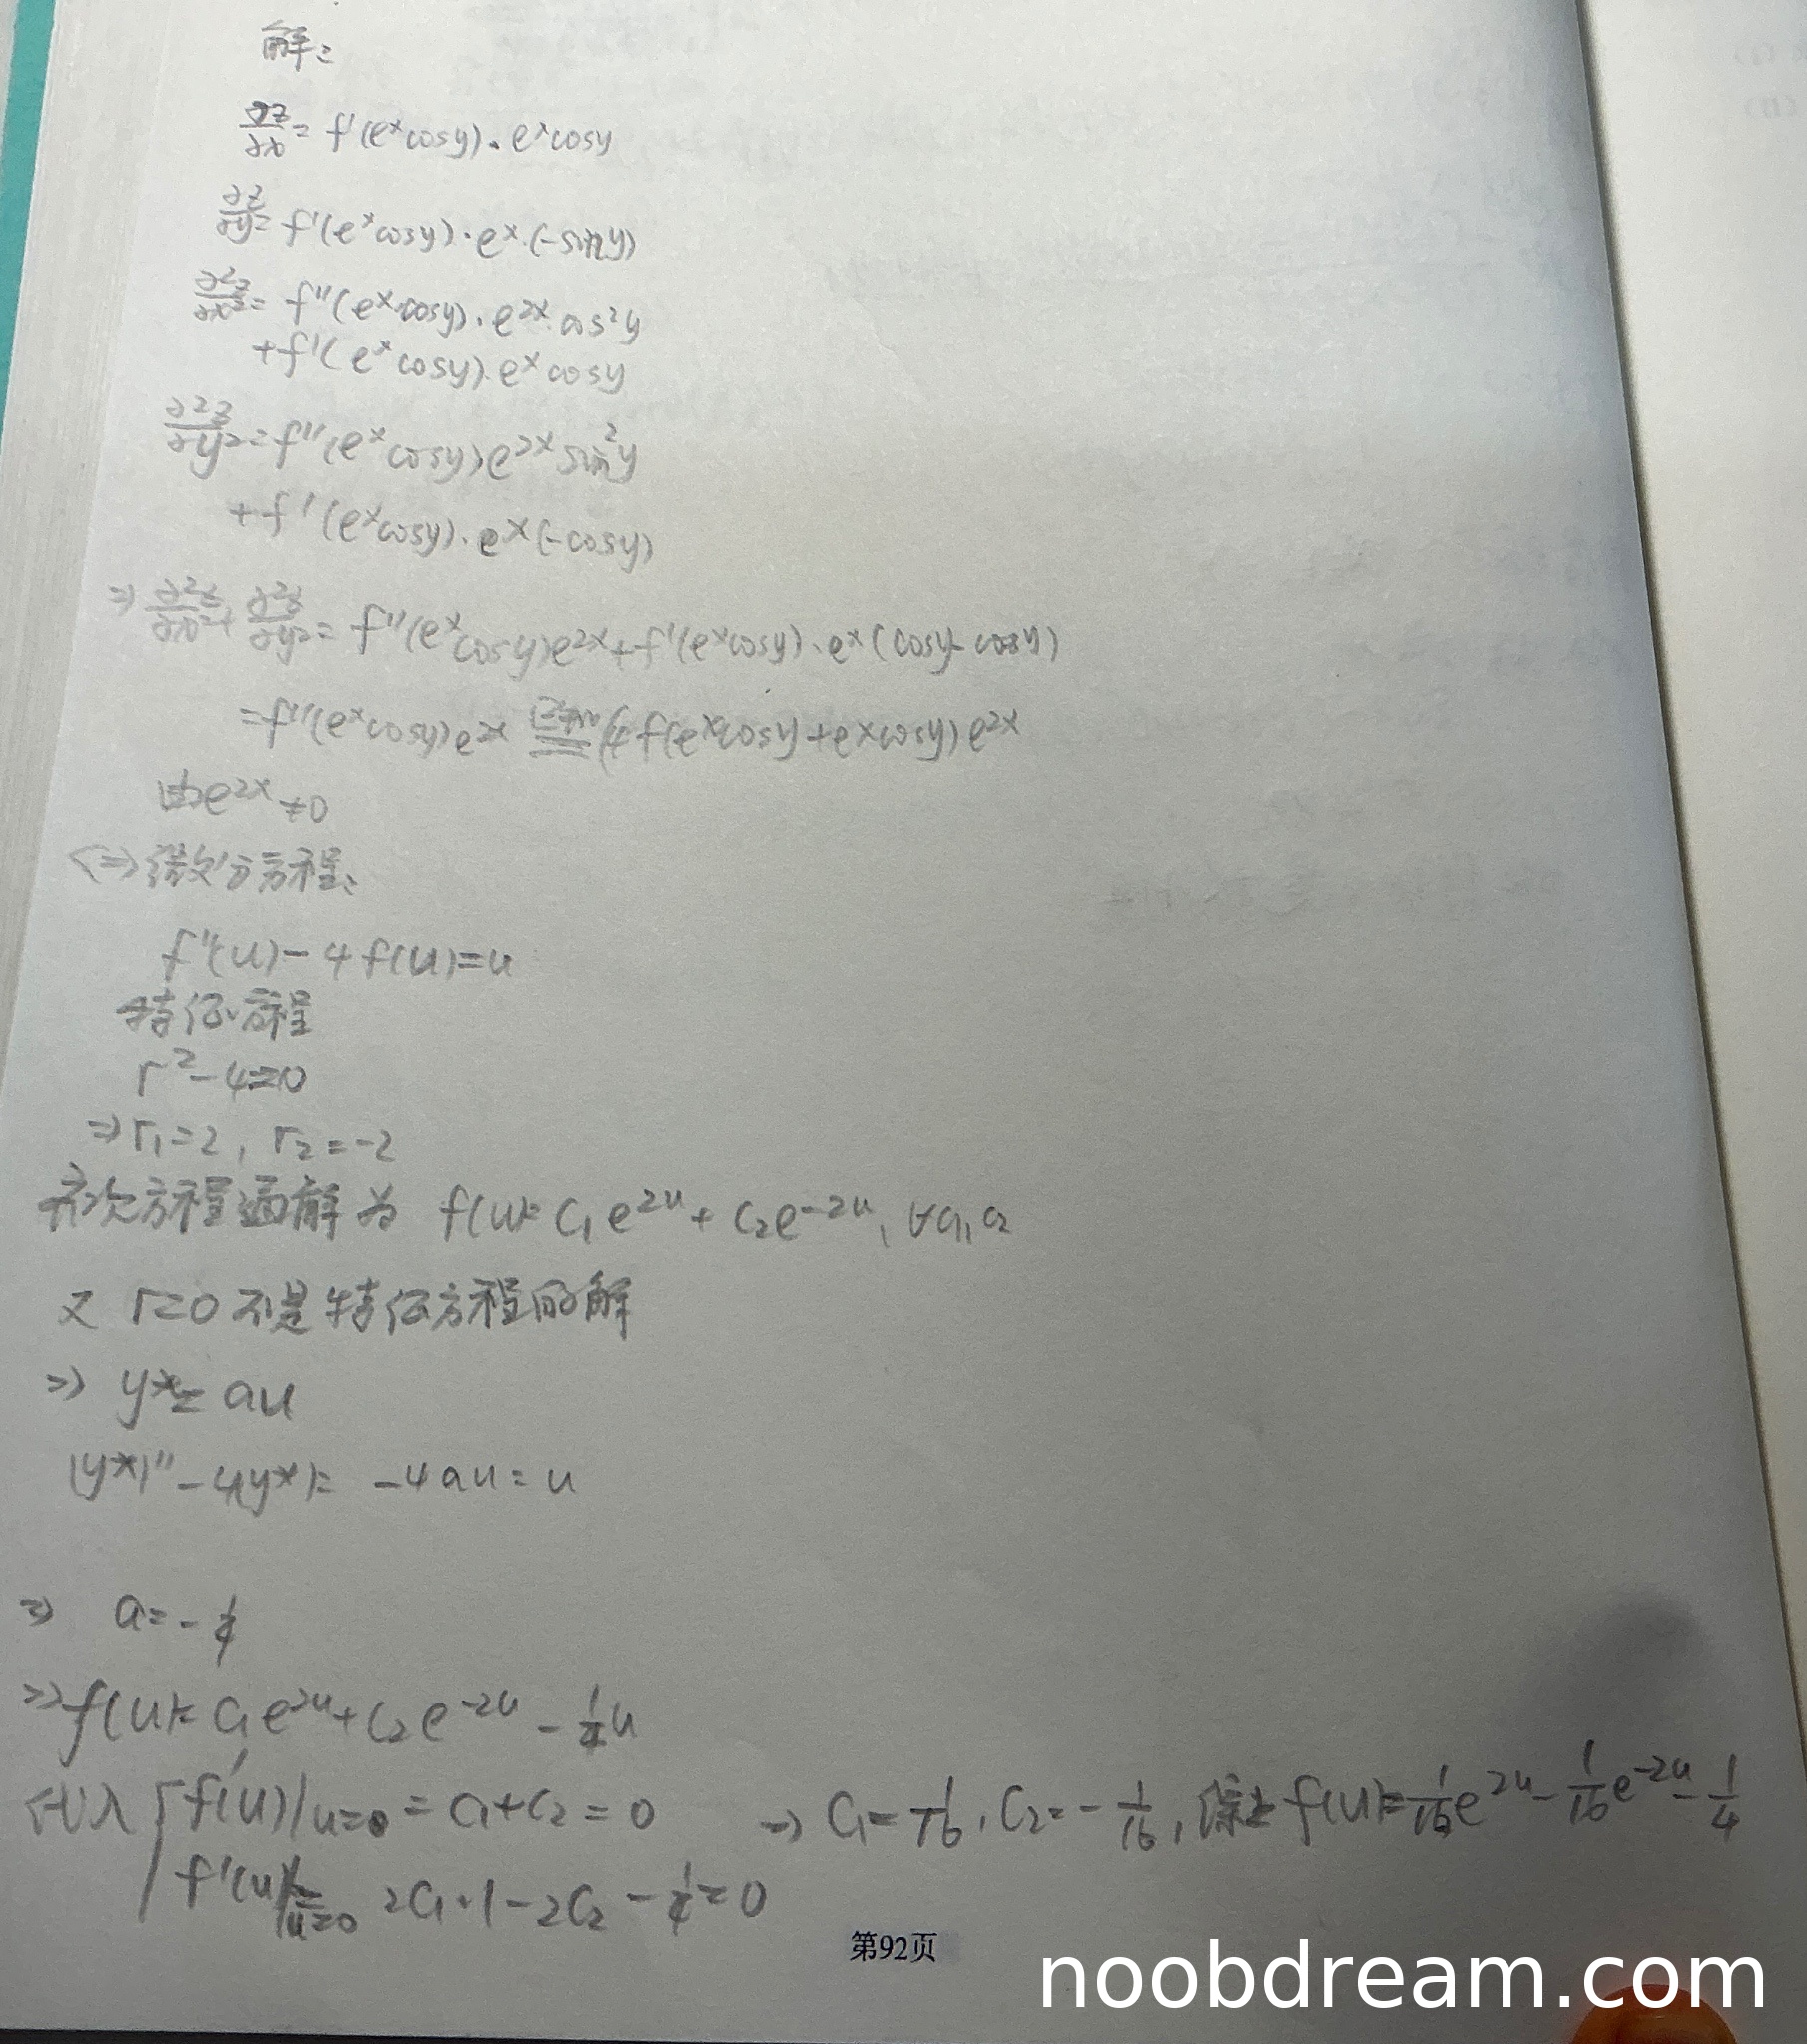 解：
∂z/∂x = f'(e^x cosy)·e^x cosy
∂z/∂y = f'(e^x cosy)·e^x·(-siny)
∂²z/∂x² = f''(e^x·cosy)·e^2x·cos²y
+f'(e^x cosy)·e^x cosy
∂²z/∂y² = f''(e^x cosy)e^2x sin²y
+f'(e^x cosy)·e^x(-cosy)
⇒ ∂²z/∂x² + ∂²z/∂y² = f''(e^x cosy)e^2x+f'(e^x cosy)·e^x(cosy-cosy)
=f''(e^x cosy)e^2x 已知= (4f(e^x cosy+e^x cosy)e^2x
由e^2x≠0
⇔微分方程：
f''(u)-4f(u)=u
特征方程
r²-4=0
⇒r₁=2, r₂=-2
齐次方程通解为 f(u)=C₁e^2u+C₂e^-2u, ∀C₁,C₂
又 r=0不是特征方程的解
⇒ y*= au
(y*)''-4(y*)= -4au=u
⇒ a=-1/4
⇒f(u)=C₁e^2u+C₂e^-2u-1/4u
代入 f'(u)|u=0=C₁+C₂=0 ⇒ C₁=1/16, C₂=-1/16, 综上 f(u)=1/16e^2u-1/16e^-2u-1/4
f'(u)|u=0= 2C₁·1-2C₂-1/4=0
第92页
noobdream.com